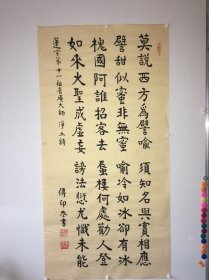 莫說西方為譬喻 須知名與實相應
譬甜似蜜非無蜜 喻冷如冰卻有冰
槐國阿誰招客去 蜃樓何處勸人登
如來大聖成虛妄 謗法愆尤懺未能
蓮宗第十一祖省庵大師 淨土詩 傳印恭書